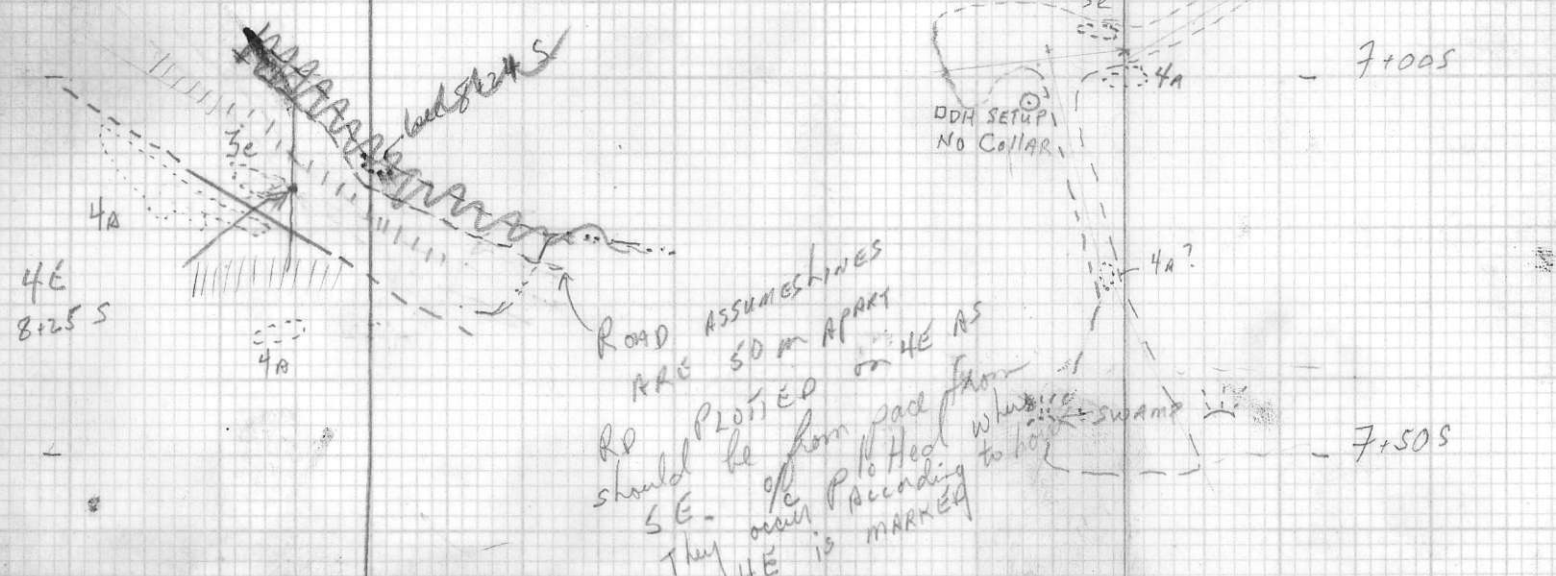 3e
4A
4E
8+25 S
4A
ROAD ASSUMES LINES
ARE 50 m APART
RD PLOTTED on 4E AS
should be from pace from
5E. o/c plotted where
They occur According to how
4E is MARKED
3e
4A
7+00S
DDH SETUP
NO COLLAR
4A?
SWAMP
7+50S